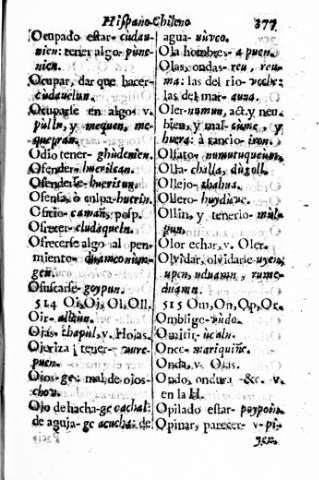 Hispano-Chileno 377
Ocupado estar- cudau-
nien: tener algo- pune-
nien.
Ocupar, dar que hacer-
cudauelun.
Ocuparse en algo- v.
pulli, y mequen, me-
quepran.
Odio tener- ghùdenien.
Ofender- huerilcan.
Ofenderse- huerilun.
Ofensa, ò culpa- huerin.
Oficio- caman, pesp.
Ofrecer- cludaqueln.
Ofrecerse algo al pen-
miento- duamconium-
gen.
Ofuscarse- goypun.
514 Oi, Oj, Ol, Oll.
Oir- allcùn.
Ojas- chapùl, v. Hojas.
Ojeriza ; tener- mre-
puen.
Ojos- ge: mal de ojos-
chov.
Ojo de hacha- ge cachal:
de aguja- ge acucha: de
agua- uùvco.
Ola hombre- a puen.
Olas, ondas- reu, reu-
ma: las del rio- veula:
las del mar- auna.
Oler- numun, act. y neu
bien, y mal- cùme, y
huera: à rancio- iron.
Olfato- numutuqueum.
Olla- challa, dùgoll.
Ollejo- abahua.
Ollero- huydùuc.
Ollin, y tenerlo- mùl-
pun.
Olor echar, v. Oler.
Olvidar, olvidarse- uyen,
upen, nduamn, rume-
duamn.
515 Om, On, Op, Or.
Omblige- vùdo.
Omitir- ùcùln.
Once- mariquiñe.
Onda, v. Olas.
Ondo, ondura- &c. v.
en la H.
Opilado estar- poypoin.
Opinar, parecer- v. pi-